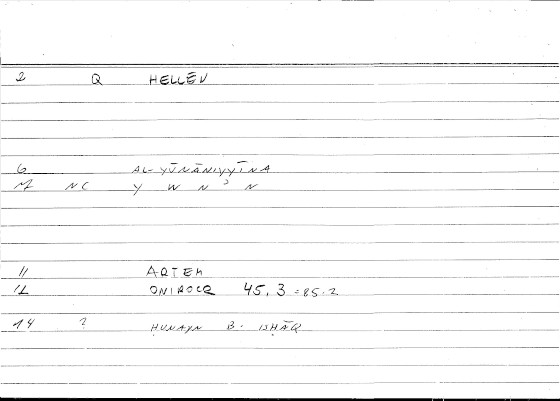 2 Q HELLĒN
6 AL-YŪNĀNIYYĪNA
M NC Y W N ᵓ N
11 ARTEM
12 ONIROCR 45, 3 = 85.2
14 ? ḤUNAYN B. ISḤĀQ